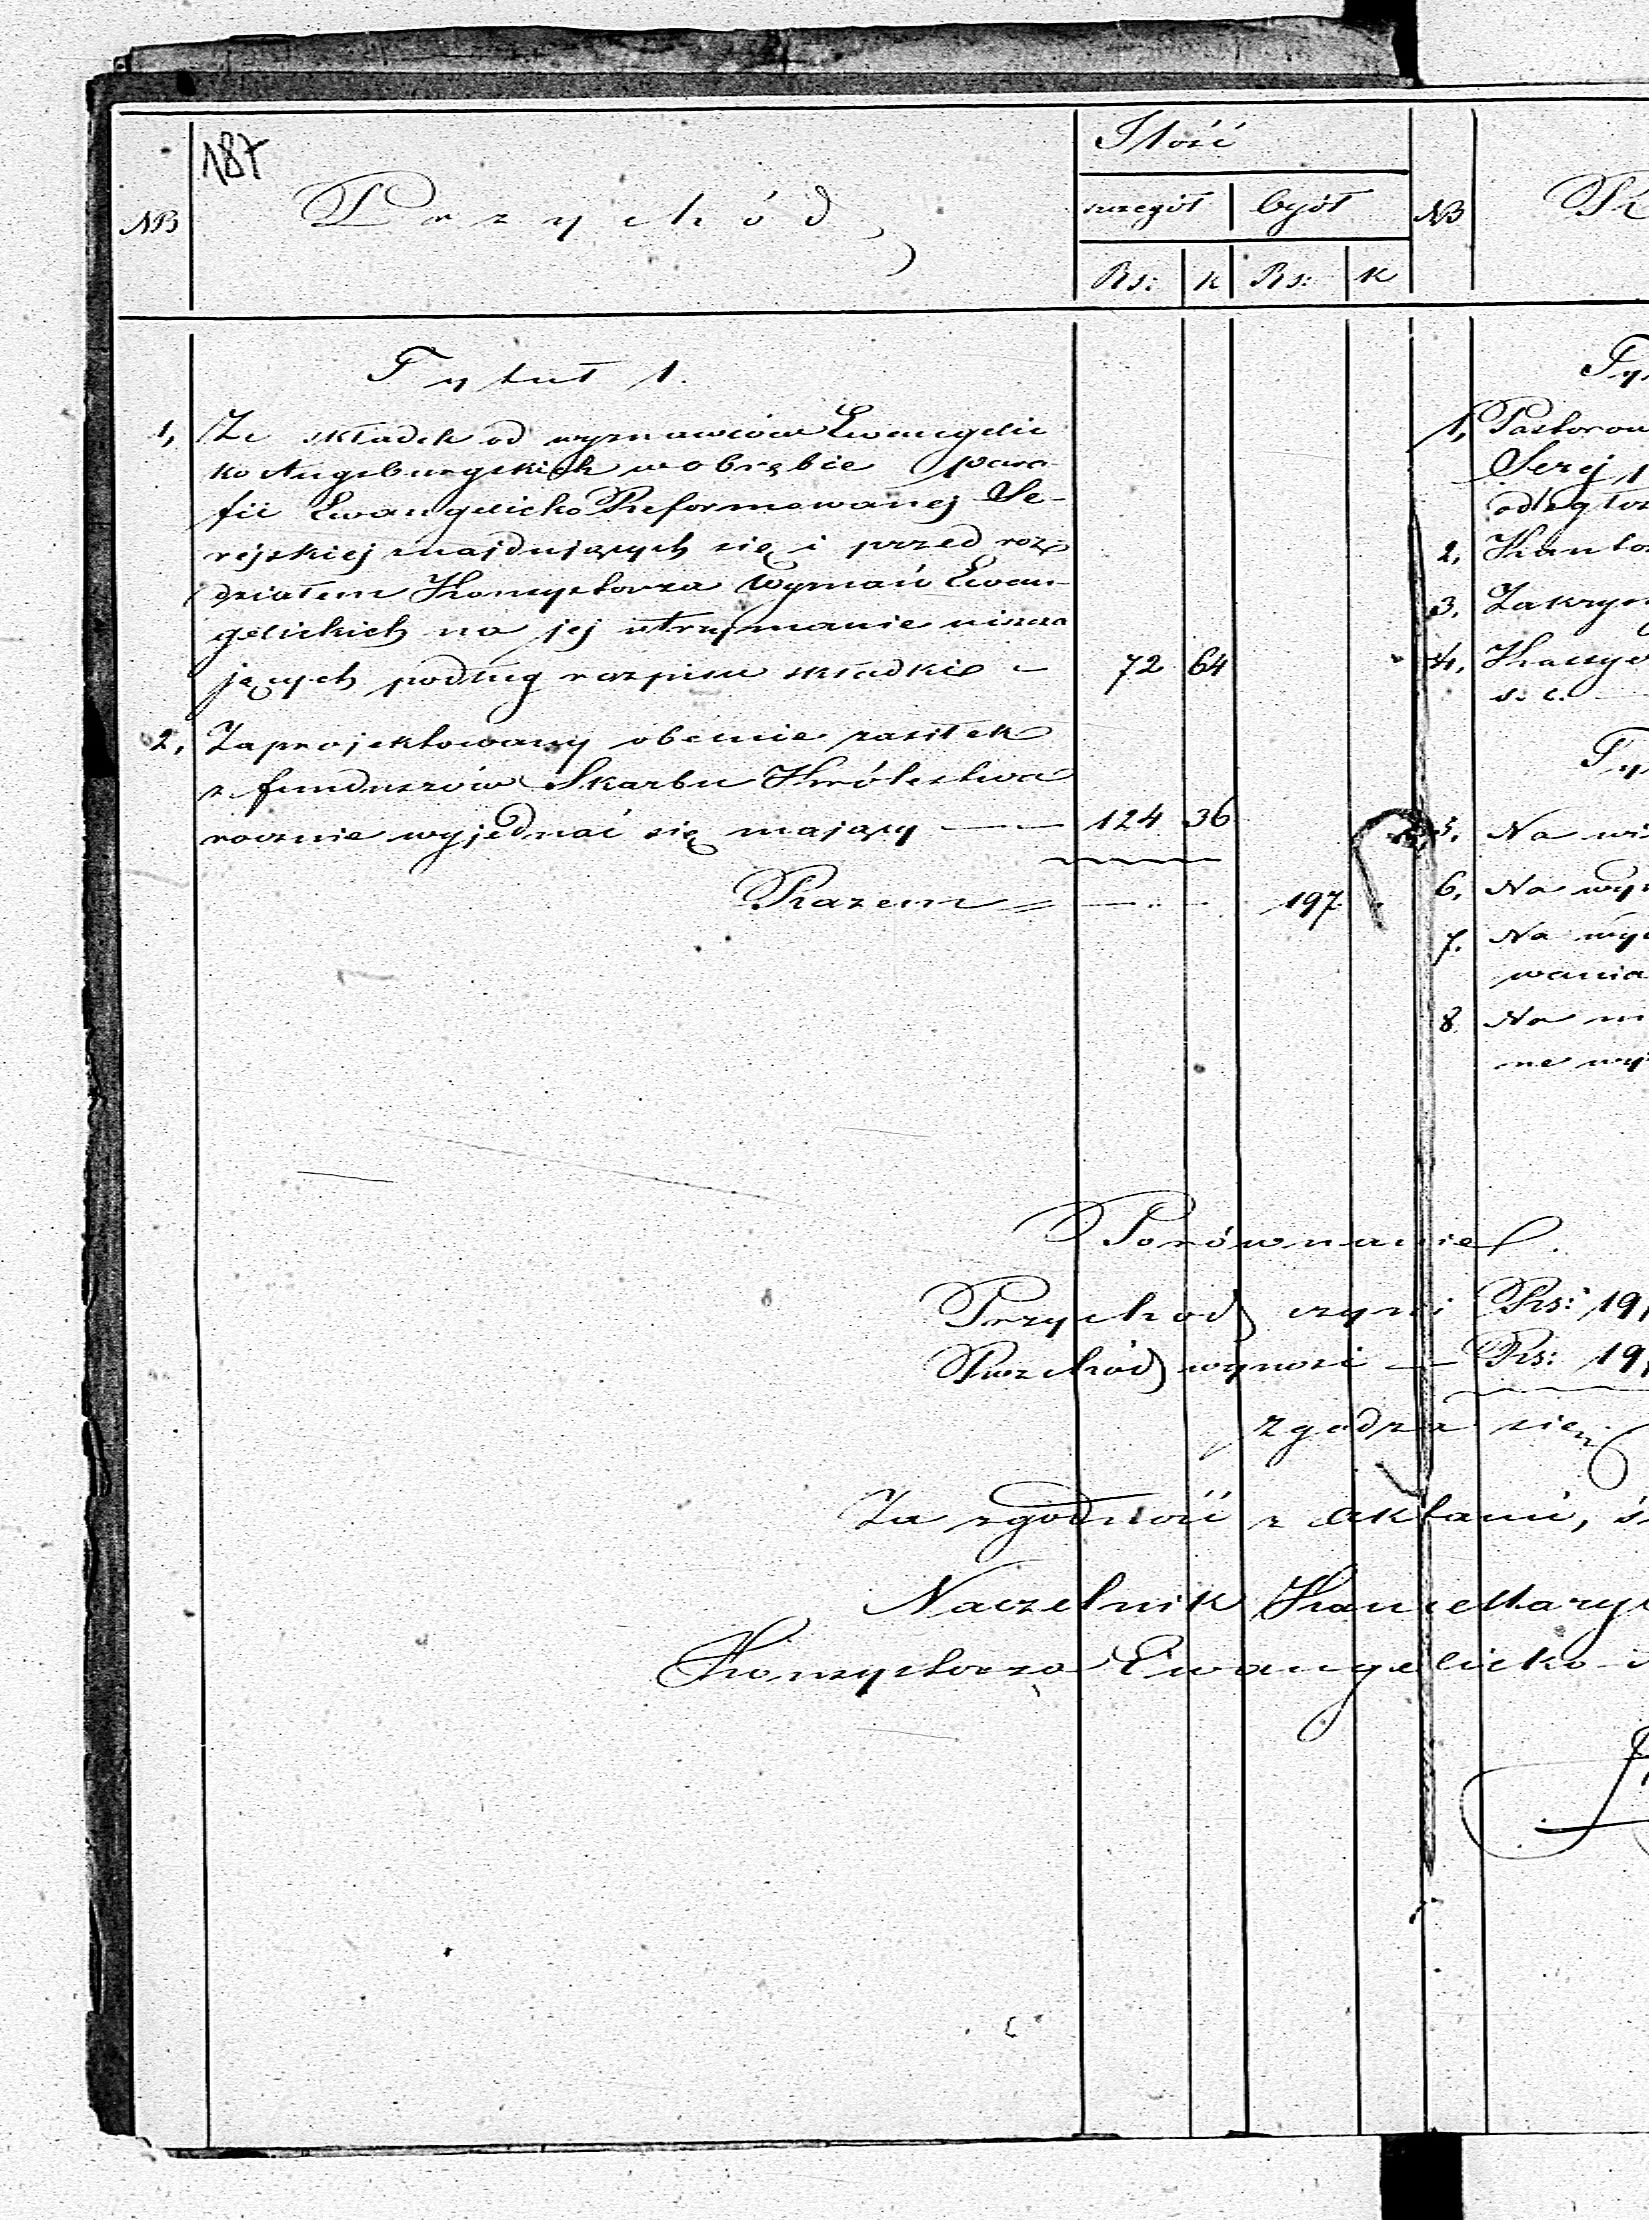 187
NB
Przychód
Ilość
szczegół
Ogół
NB
Rs: k Rs: k
Tytuł 1.
1, Ze składek od wyznawców Ewangelic
ko Augsburgskich w obrębie para-
fii Ewangelicko Reformowanej Se-
rejskiej znajdujących się i przed roz-
działem Konsystorza Wyznań Ewan-
gelickich na jej utrzymanie uiszcza
jących podług rozpisu składki 72 64
2, Zaprojektowany obecnie zasiłek
z funduszów Skarbu Królestwa
rocznie wyjednać się mający 124 36
Razem 197
1, Pastorow
Serej
odległoś
2, Kanto
3, Zakrys
4,
s. c.
5, Na wi
6, Na wyn
7. Na wyc
wania
8 Na
ne wy
Porównanie.
Przychod czyni Rs: 19
Rozchód wynosi Rs: 19
zgadza się
Za zgodność z Aktami, ś
Naczelnik Kancellaryi
Konsystorza Ewangelicko